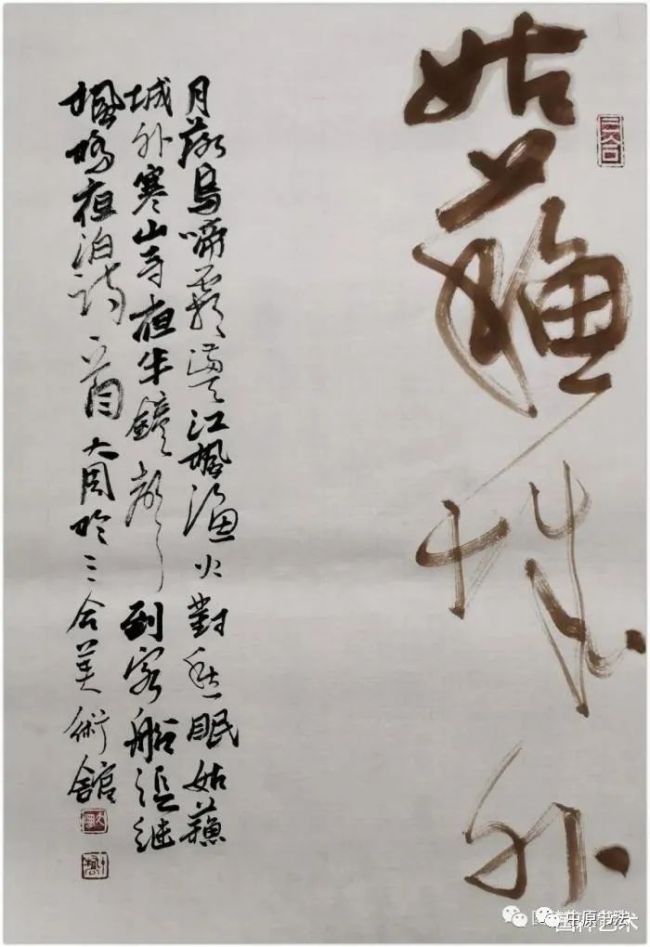 姑蘓城外
月落烏啼霜滿天江楓漁火對愁眠姑蘓
城外寒山寺夜半鐘聲到客船張継
楓橋夜泊詩一首大周於三合美術館
三合
中原书法